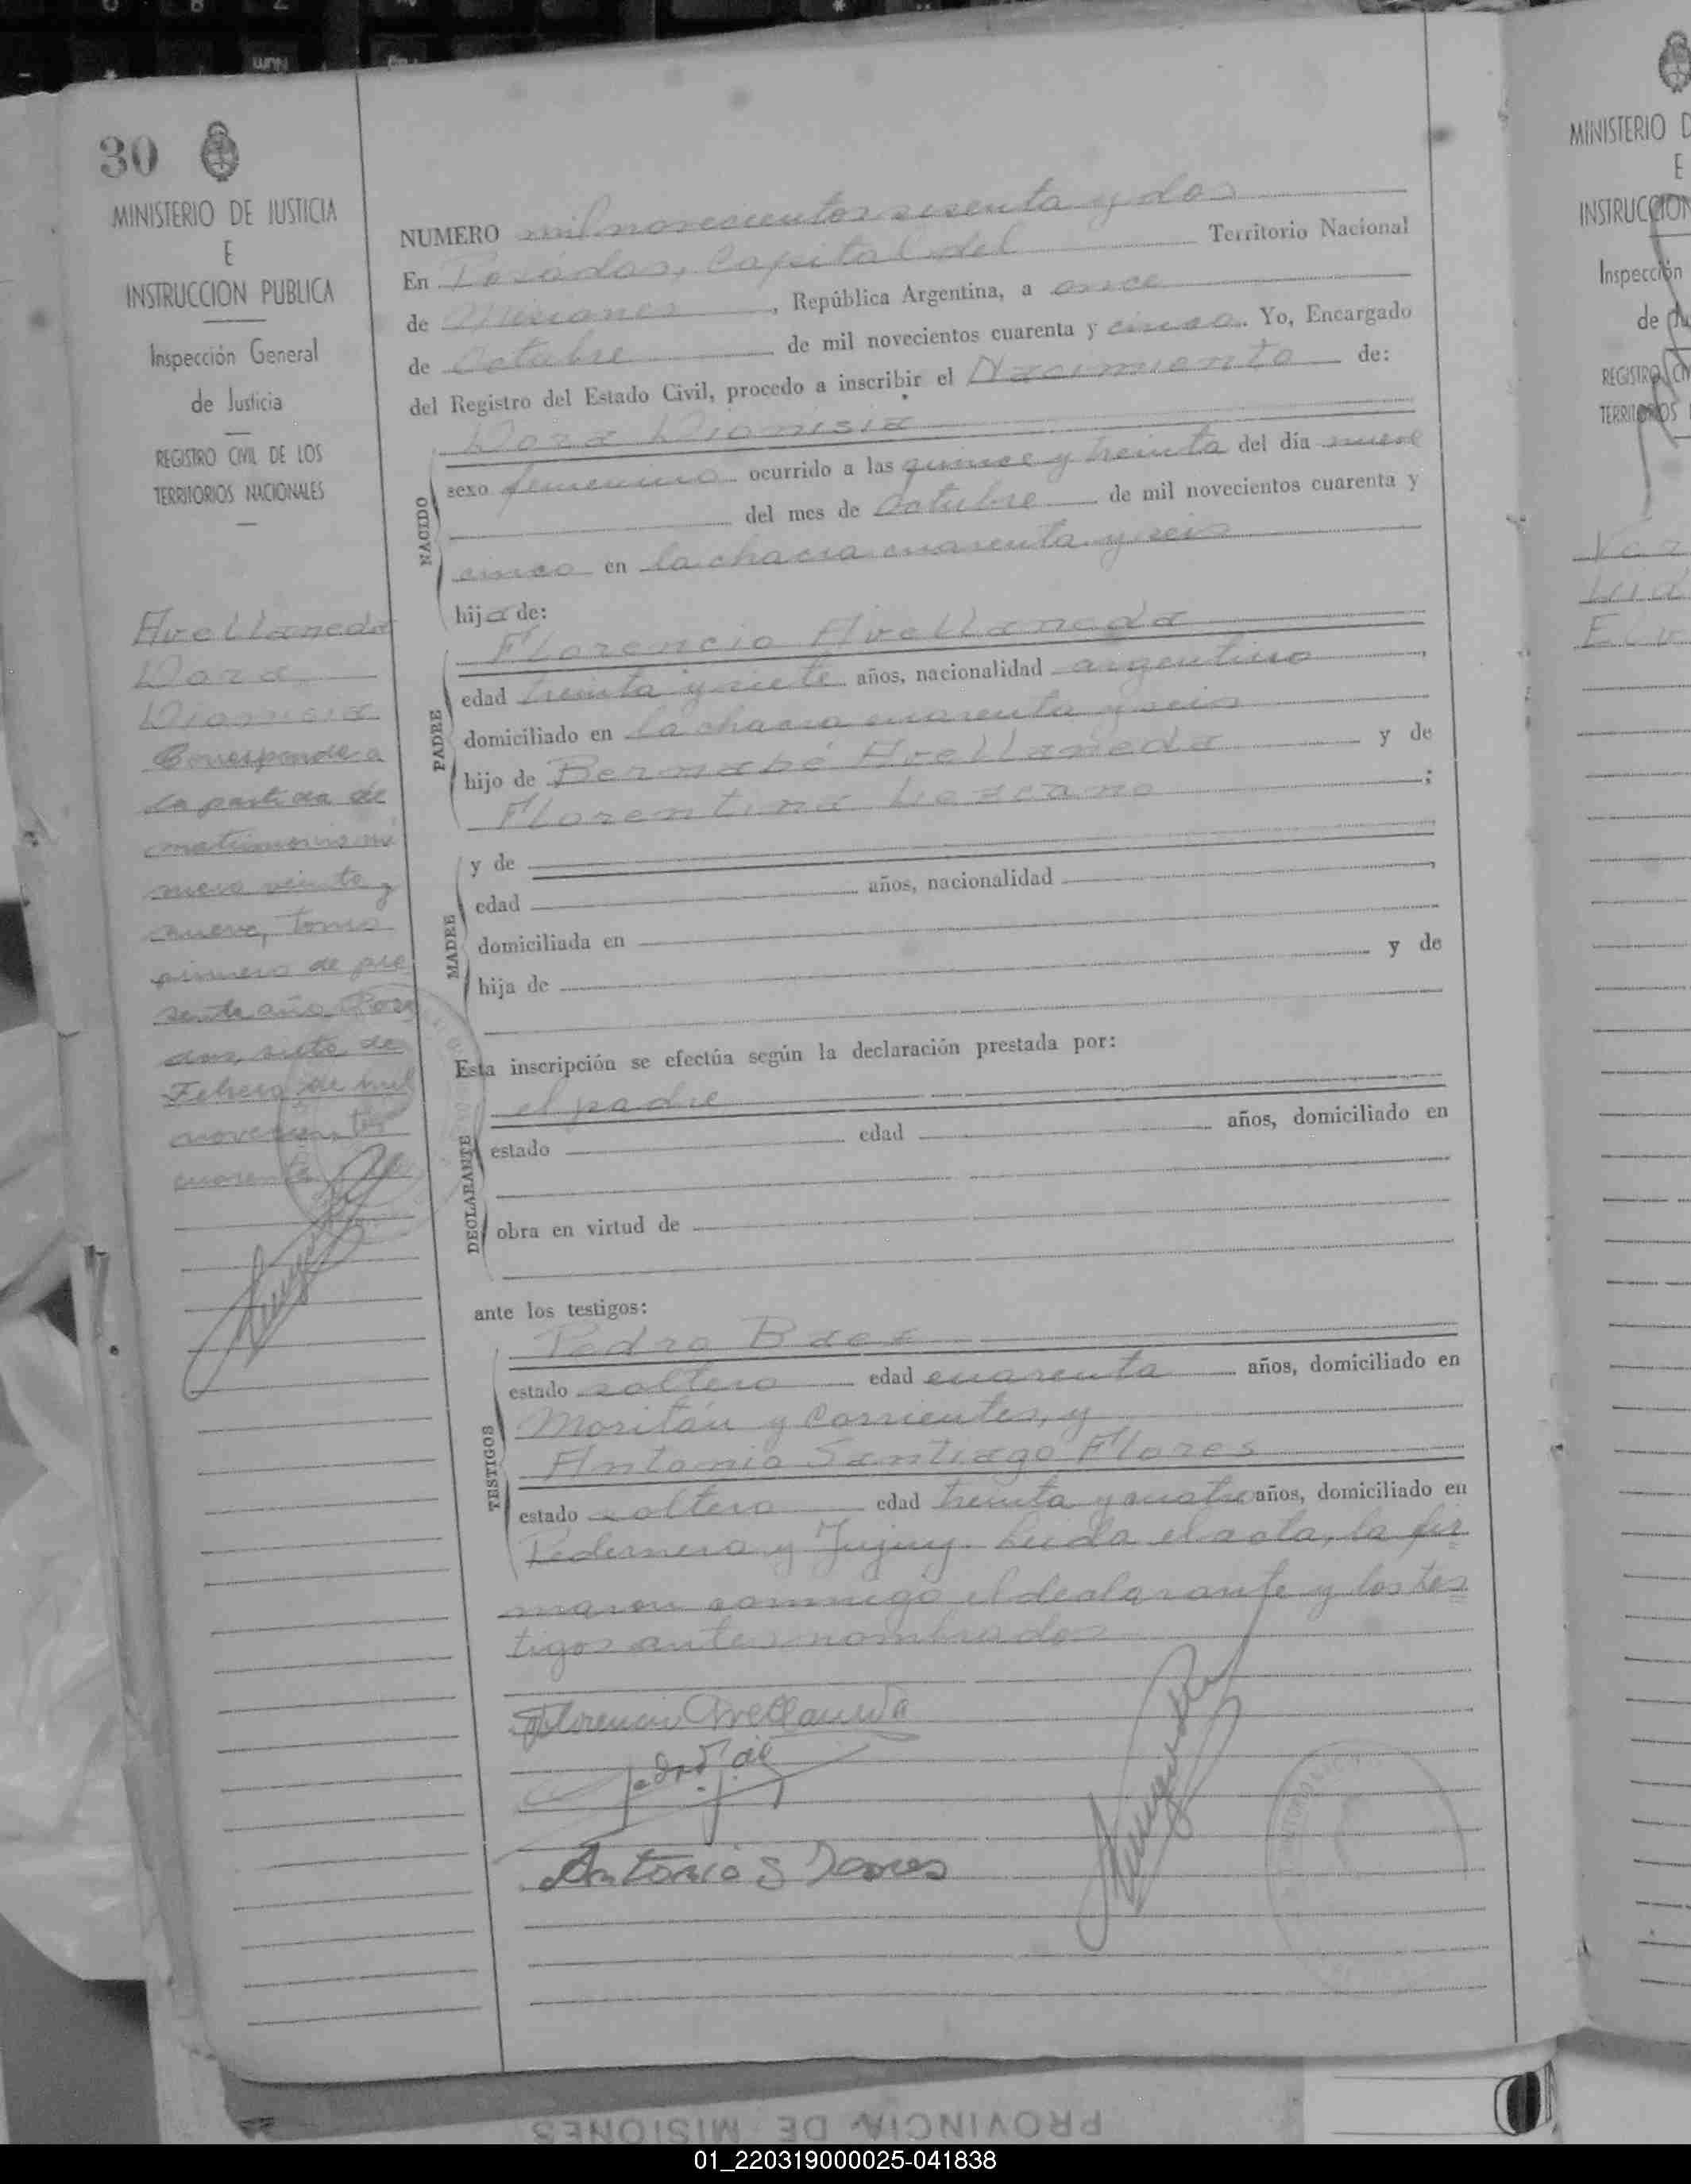 30
MINISTERIO DE JUSTICIA
E
INSTRUCCION PUBLICA
Inspección General
de Justicia
REGISTRO CIVIL DE LOS
TERRITORIOS NACIONALES
Avellaneda
Dora
Dionisia
Corresponde a
la partida de
matrimonio nú
mero veinte y
nueve, tomo
primero de pre
sente año. Posa
das, siete de
Febrero de mil
novecientos
cuarenta
NUMERO mil novecientos sesenta y dos
En Posadas, Capital del Territorio Nacional
de Misiones, República Argentina, a once
de Octubre de mil novecientos cuarenta y cinco. Yo, Encargado
del Registro del Estado Civil, procedo a inscribir el Nacimiento de:
Dora Dionisia
NACIDO
sexo femenino ocurrido a las quince y treinta del día nueve
del mes de Octubre de mil novecientos cuarenta y
cinco en la chacra cuarenta y seis
hija de:
Florencio Avellaneda
PADRE
edad treinta y siete años, nacionalidad argentino,
domiciliado en la chacra cuarenta y seis
hijo de Bernabé Avellaneda y de
Florentina Lezcano;
MADRE
y de
edad años, nacionalidad,
domiciliada en
hija de y de
Esta inscripción se efectúa según la declaración prestada por:
el padre
DECLARANTE
estado edad años, domiciliado en
obra en virtud de
ante los testigos:
Pedro Baez
TESTIGOS
estado soltero edad cuarenta años, domiciliado en
Moritán y Corrientes, y
Antonio Santiago Flores
estado soltero edad treinta y cuatro años, domiciliado en
Pedernera y Jujuy. Leida el acta, la fir
maron conmigo el declarante y los tes
tigos antes nombrados
Florencio Avellaneda
Antonio S Flores
MINISTERIO D
E
INSTRUCCION
Inspección
de Ju
REGISTRO CIV
TERRITORIOS
PROVINCIA DE MISIONES
01_220319000025-041838